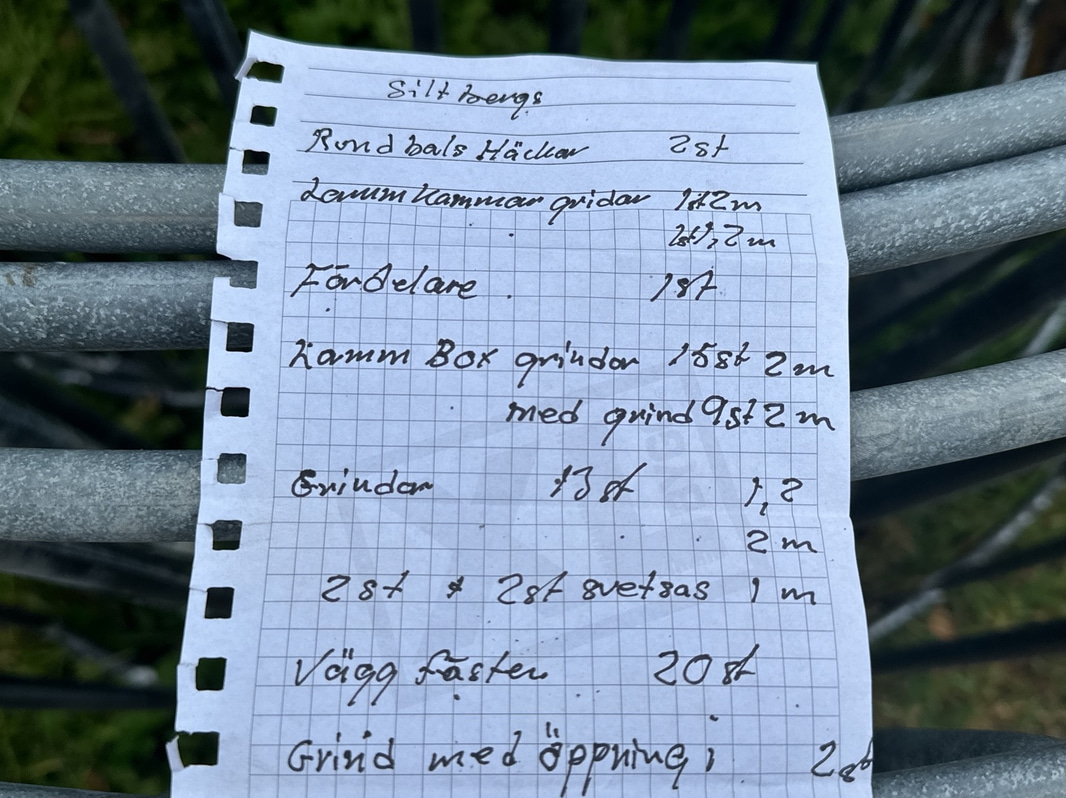 Siltbergs
Rundbals Häckar 2st
Lammkammar gridar 1st 2m
1,2m
Fördelare 1st
Lamm Box grindar 15st 2m
med grind 9st 2m
Grindar 13st 1,2
2m
2st 2st svetsas 1m
Vägg fästen 20st
Grind med öppning i 2st